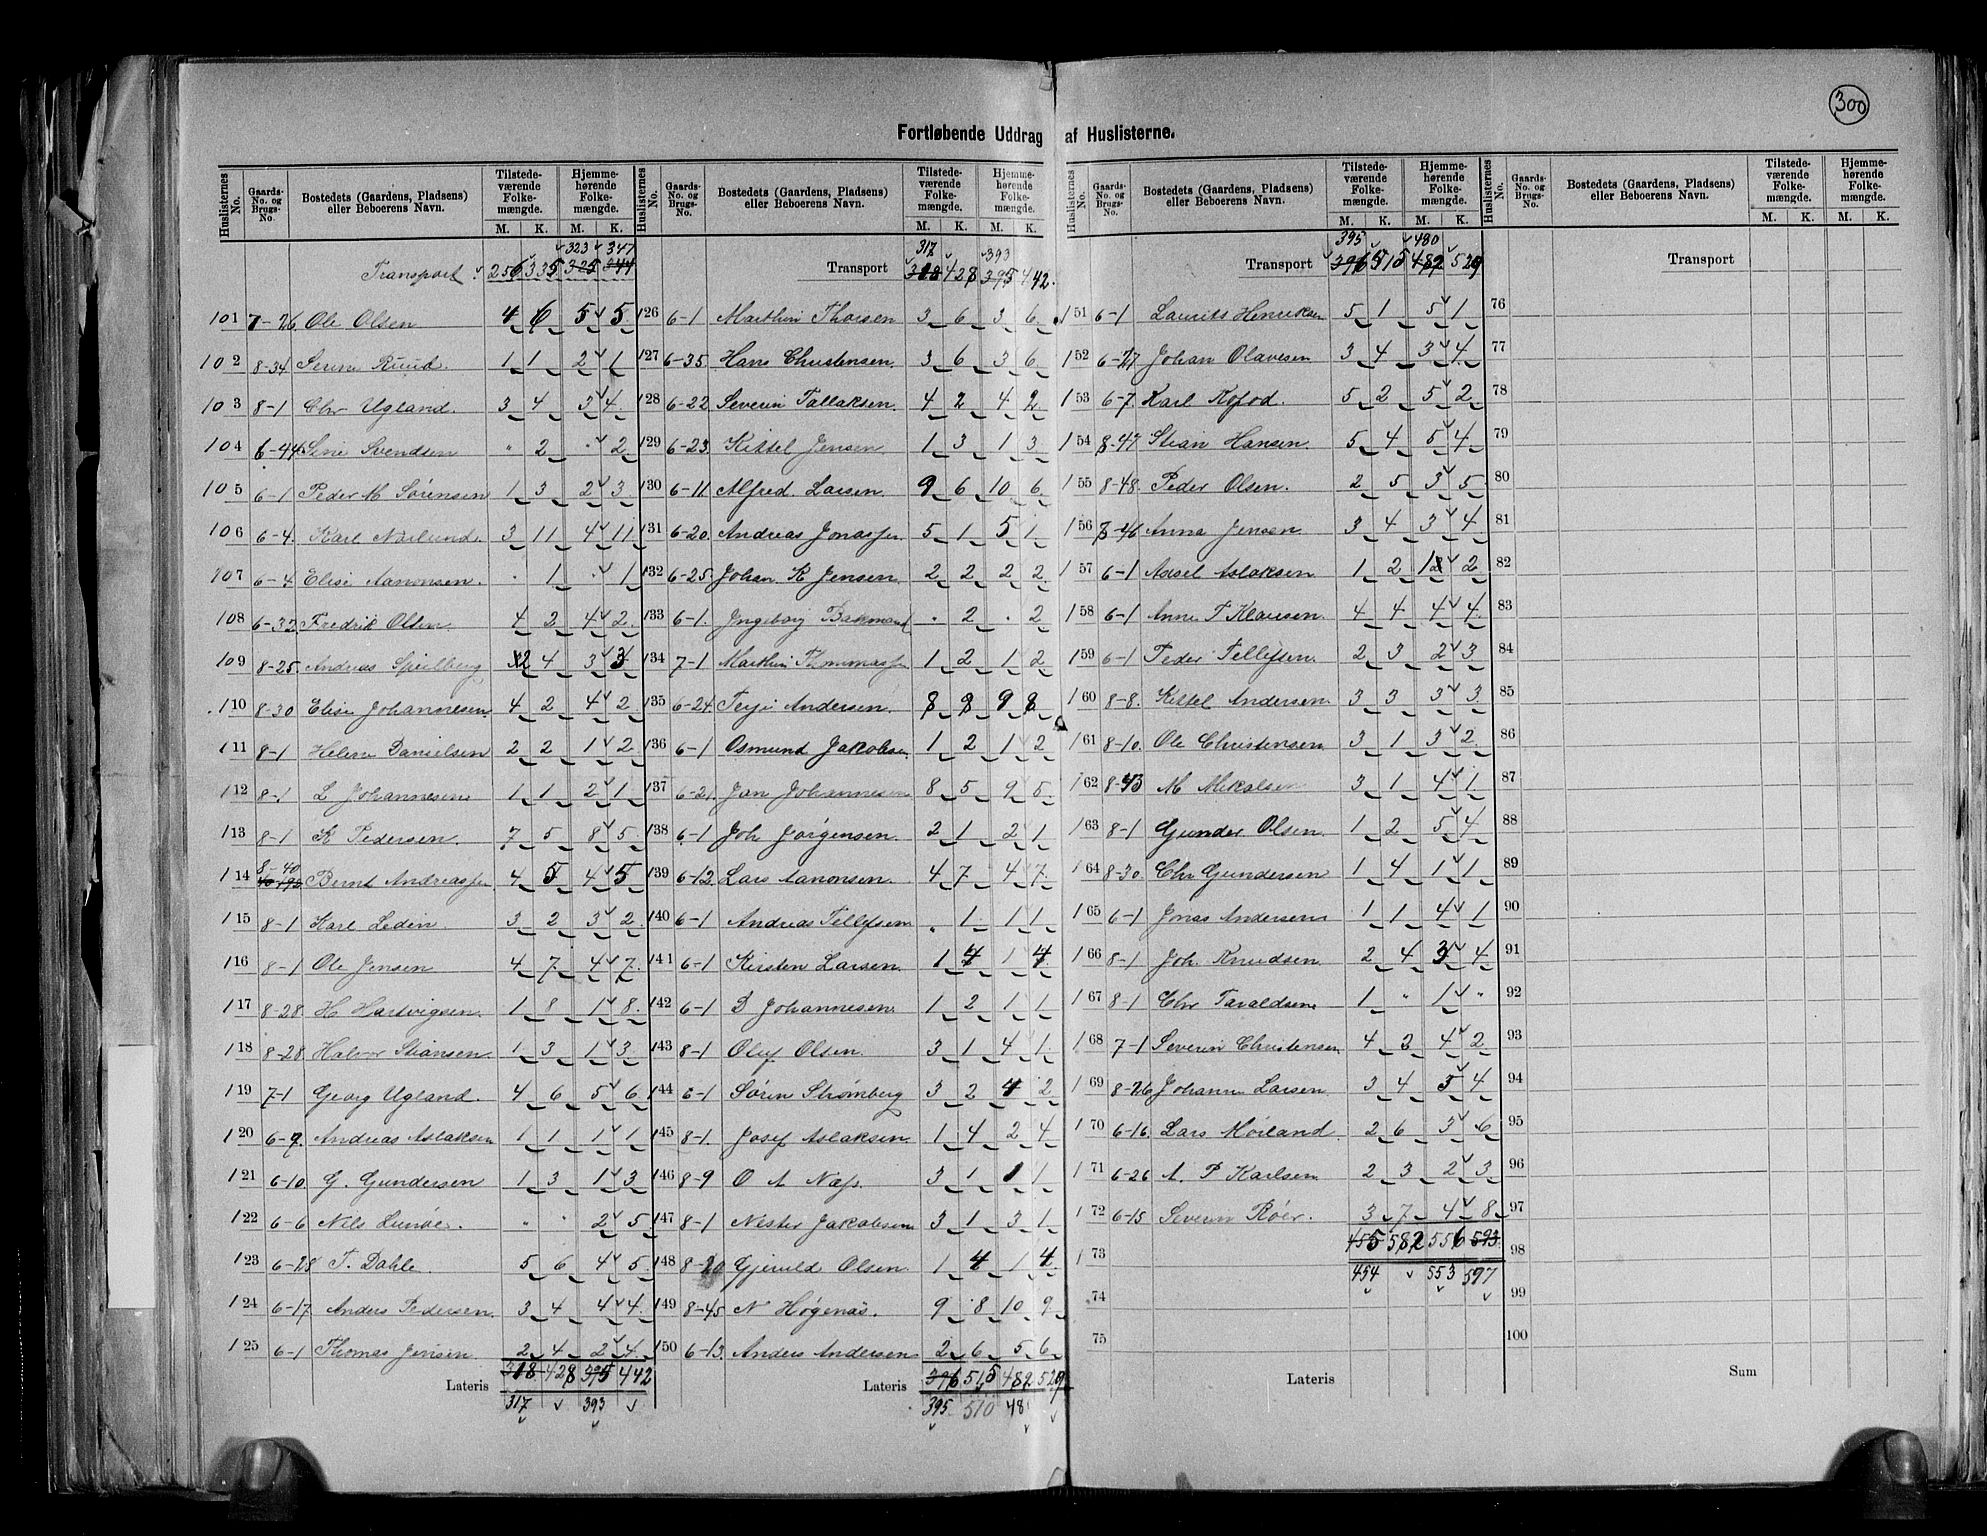 300
Fortløbende Uddrag af Huslisterne.
Huslisternes No. Gaards-No. og Brugs-No. Bostedets (Gaardens, Pladsens) eller Beboerens Navn. Tilstedeværende Folkemængde. M. K. Hjemmehørende Folkemængde. M. K.
323 347
Transport 256 335 325 344
101 7-26 Ole Olsen 4 6 5 5
102 8-34 Serine Ruud 1 1 2 1
103 8-1 Chr Ugland 3 4 3 4
104 6-44 Sine Svendsen " 2 " 2
105 6-1 Peder M Sörensen 1 3 2 3
106 6-4 Karl Naslund 3 11 4 11
107 6-4 Elise Aanonsen . 1 . 1
108 6-32 Fredrik Olsen 4 2 4 2
109 8-25 Andreas Spielberg 2 4 3 3
110 8-30 Elise Johannesen 4 2 4 2
111 8-1 Helene Danielsen 2 2 1 2
112 8-1 L Johannesen 1 1 2 1
113 8-1 K Pedersen 7 5 8 5
114 8-40 Bernt Andreassen 4 5 4 5
115 8-1 Karl Ledin 3 2 3 2
116 8-1 Ole Jensen 4 7 4 7
117 8-28 H Hartvigsen 1 8 1 8
118 8-28 Halvor Stiansen 1 3 1 3
119 7-1 Georg Ugland 4 6 5 6
120 6-9 Andreas Aslaksen 1 1 1 1
121 6-10 G. Gundersen 1 3 1 3
122 6-6 Nils Lunde " " 2 5
123 6-28 T. Dahle 5 6 4 5
124 6-17 Anders Pedersen 3 4 4 4
125 6-1 Thomas Jensen 2 4 2 4
Lateris 318 428 395 442
317 393
Huslisternes No. Gaards-No. og Brugs-No. Bostedets (Gaardens, Pladsens) eller Beboerens Navn. Tilstedeværende Folkemængde. M. K. Hjemmehørende Folkemængde. M. K.
317 393
Transport 318 428 395 442
126 6-1 Marthin Thorsen 3 6 3 6
127 6-35 Hans Christensen 3 6 3 6
128 6-22 Severin Tallaksen 4 2 4 2
129 6-23 Kittel Jensen 1 3 1 3
130 6-11 Alfred Larsen 9 6 10 6
131 6-20 Andreas Jonassen 5 1 5 1
132 6-25 Johan K Jensen 2 2 2 2
133 6-1 Ingeborg . 2 . 2
134 7-1 Marthin Thommassen 1 2 1 2
135 6-24 Terje Andersen 8 8 9 8
136 6-1 Osmund Jakobsen 1 2 1 2
137 6-21 Jan Johannesen 8 5 9 5
138 6-1 Joh Jörgensen 2 1 2 1
139 6-12 Lars Aanonsen 4 7 4 7
140 6-1 Andreas Tellefsen . 1 1 1
141 6-1 Kirsten Larsen 1 4 1 4
142 6-1 D Johannesen 1 2 1 1
143 8-1 Oluf Olsen 3 1 4 1
144 6-1 Sören Strömberg 3 2 4 2
145 8-1 Josef Aslaksen 1 4 2 4
146 8-9 O A Næs 3 1 1 1
147 8-1 Nester Jakobsen 3 1 3 1
148 8-20 Gjeruld Olsen 1 4 1 4
149 8-45 N Høgenæs 9 8 10 9
150 6-13 Anders Andersen 2 6 5 6
Lateris 396 515 482 529
395 510 48
Huslisternes No. Gaards-No. og Brugs-No. Bostedets (Gaardens, Pladsens) eller Beboerens Navn. Tilstedeværende Folkemængde. M. K. Hjemmehørende Folkemængde. M. K.
395 480
Transport 396 515 482 529
151 6-1 Laurits Henriksen 5 1 5 1
152 6-27 Johan Olavesen 3 4 3 4
153 6-7 Karl Kofod 5 2 5 2
154 8-47 Stian Hansen 5 4 5 4
155 8-48 Peder Olsen 2 5 3 5
156 8-46 Anna Jensen 3 4 3 4
157 6-1 Aksel Aslaksen 1 2 1 2
158 6-1 Anne T Klausen 4 4 4 4
159 6-1 Peder Tellefsen 2 3 2 3
160 8-8 Kittel Andersen 3 3 3 3
161 8-10 Ole Christensen 3 1 3 2
162 8-43 M Mikalsen 3 1 4 1
163 8-1 Gunder Olsen 1 2 5 4
164 8-30 Chr Gundersen 1 4 1 1
165 6-1 Jonas Andersen 1 1 4 1
166 8-1 Joh. Knudsen 2 4 3 4
167 8-1 Chr Taraldsen 1 " 1 "
168 7-1 Severin Christensen 4 2 4 2
169 8-26 Johanne Larsen 3 4 3 4
170 6-16 Lars Möiland 2 6 3 6
171 6-26 A. P Karlsen 2 3 2 3
172 6-15 Severin Röer 3 7 4 8
173 455 582 556 593
454 553 597
74
75
Lateris
Huslisternes No. Gaards-No. og Brugs-No. Bostedets (Gaardens, Pladsens) eller Beboerens Navn. Tilstedeværende Folkemængde. M. K. Hjemmehørende Folkemængde. M. K.
Transport
76
77
78
79
80
81
82
83
84
85
86
87
88
89
90
91
92
93
94
95
96
97
98
99
100
Sum